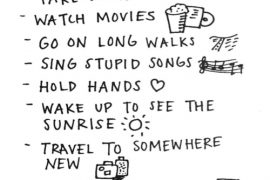 - WATCH MOVIES
- GO ON LONG WALKS
- SING STUPID SONGS
- HOLD HANDS ♡
- WAKE UP TO SEE THE
SUNRISE
- TRAVEL TO SOMEWHERE
NEW